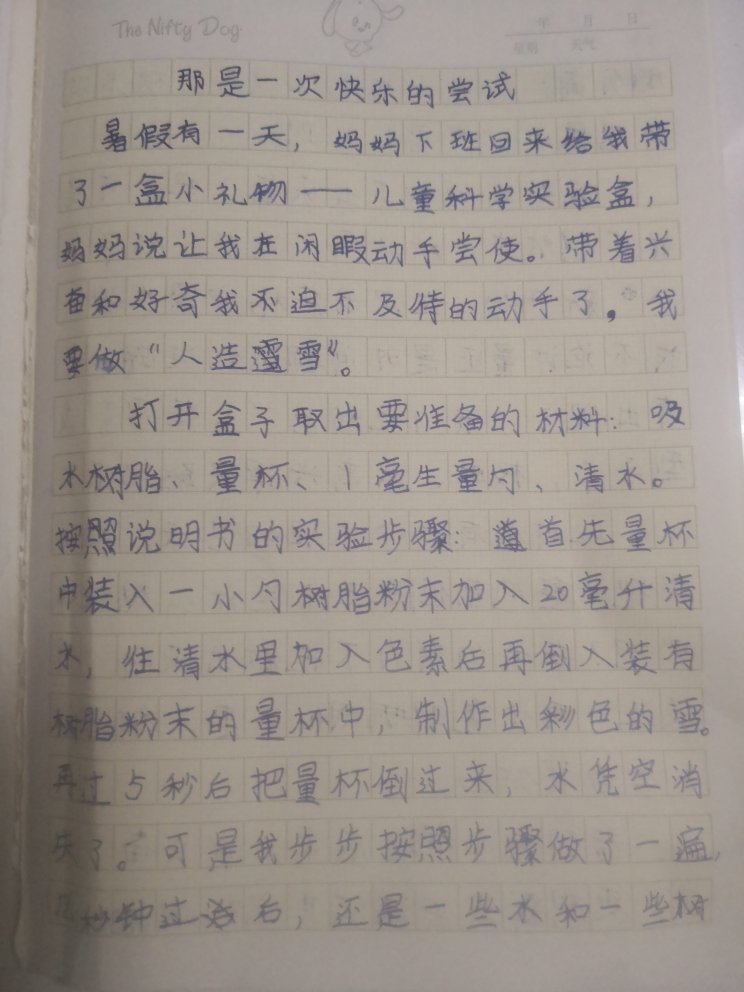 The Nifty Dog
年 月 日
星期 天气
那是一次快乐的尝试
暑假有一天，妈妈下班回来给我带
了一盒小礼物——儿童科学实验盒，
妈妈说让我在闲暇动手尝使。带着兴
奋和好奇我不迫不及待的动手了，我
要做“人造雪雪”。
打开盒子取出要准备的材料：吸
水树脂、量杯、1毫生量勺、清水。
按照说明书的实验步骤：首先量杯
中装入一小勺树脂粉末加入20毫升清
水，往清水里加入色素后再倒入装有
树脂粉末的量杯中，制作出彩色的雪。
再过5秒后把量杯倒过来，水凭空消
失了。可是我步步按照步骤做了一遍，
秒钟过后，还是一些水和一些树